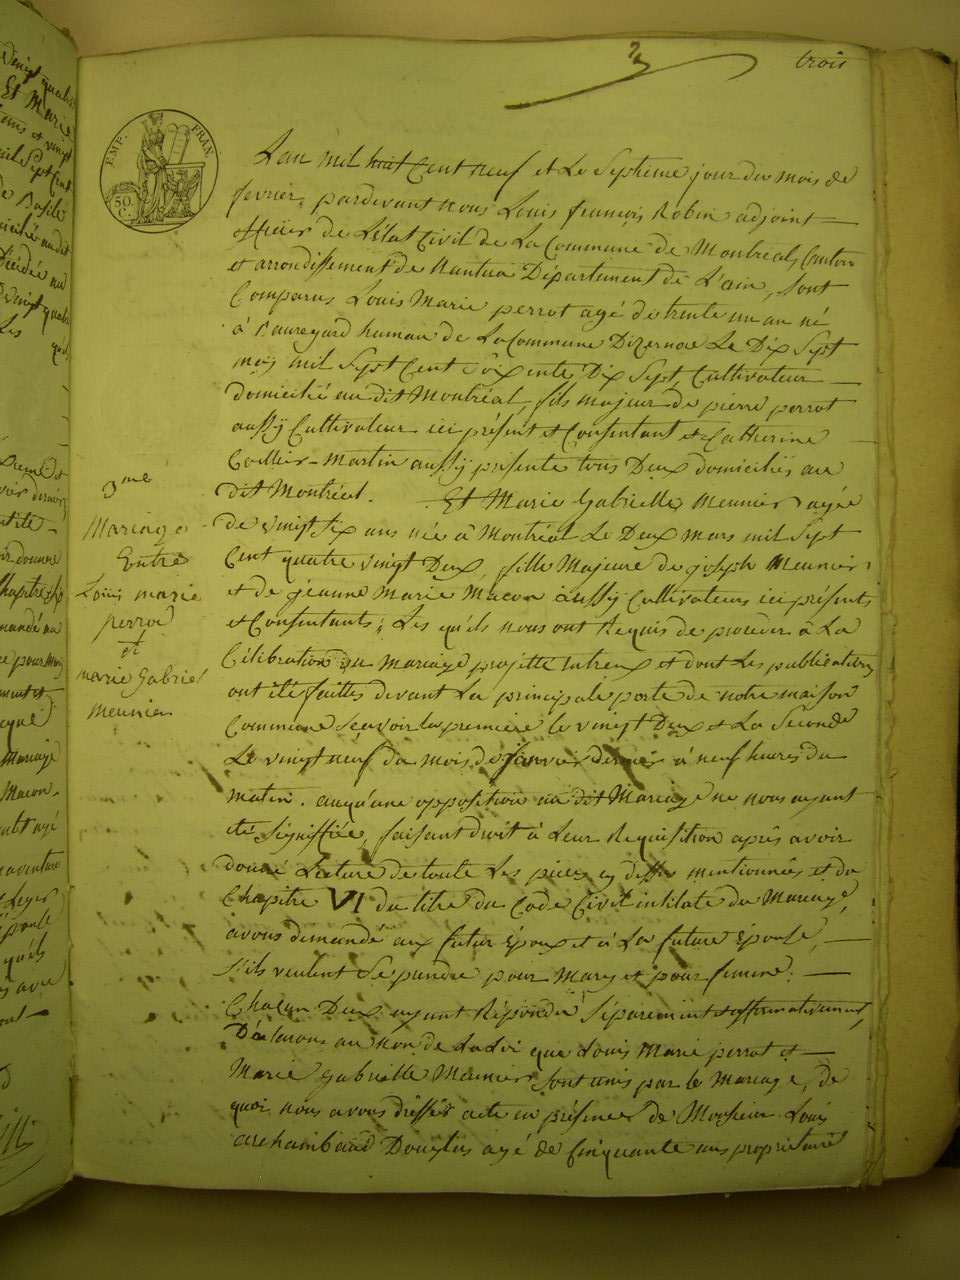 trois
EMP. FRAN
50. C.
Lan mil huit Cent neuf et Le Septieme jour du mois de
fevrier, pardevant nous Louis françois Robin adjoint
officier de L'état Civil de La Commune de Montreal, Canton
et arrondissement de Nantua Département de L'ain, Sont
Comparus Louis Marie perrot agé de trente un an né
à
humau de La Commune Dizernore Le Dix Sept
may mil Sept Cent Soixente Dix Sept, Cultivateur
domicilié au dit Montréal, fils majeur de pierre perrot
aussy Cultivateur ici présent et Consentant et Catherine
Martin aussy présente tous Deux domiciliés au
dit Montréal. Et Marie Gabrielle Meunier agée
de vingt six ans née à Montréal Le Deux mars mil Sept
Cent quatre vingt Deux, fille Majeure de joseph Meunier
et de jeanne Marie Macon aussy Cultivateurs ici présents
et Consentants; Les quels nous ont Requis de proceder à La
Célébration du mariage projetté entreux et dont Les publications
ont été faittes devant La principale porte de notre maison
Commune Sçavoir la premiere le vingt Deux et La Seconde
Le vingt neuf du mois de janvier dernier à neuf heures du
matin. auqu'une opposition au dit Mariage ne nous ayant
été Signiffiée, faisant droit à Leur Requisition après avoir
donné Lecture de toute Les pieces cy dessus mentionnées et du
Chapitre VI du titre du Code Civil intitulé du Mariage,
avons demandé aux futur Epoux et à La future Epouse,
S'ils veulent Se prendre pour Mary et pour femme.
Chacun Deux ayant Répondu Séparement et affirmativement,
Déclarons au Nom de La Loi que Louis Marie perrot et
Marie Gabrielle Meunier sont unis par le Mariage, de
quoi nous avons dressés acte en présence de Monsieur Louis
archambaud Douglas agé de Cinquante ans propriétaire
3me
Mariage
Entre
Louis marie
perrod
et
marie Gabriel
meunier